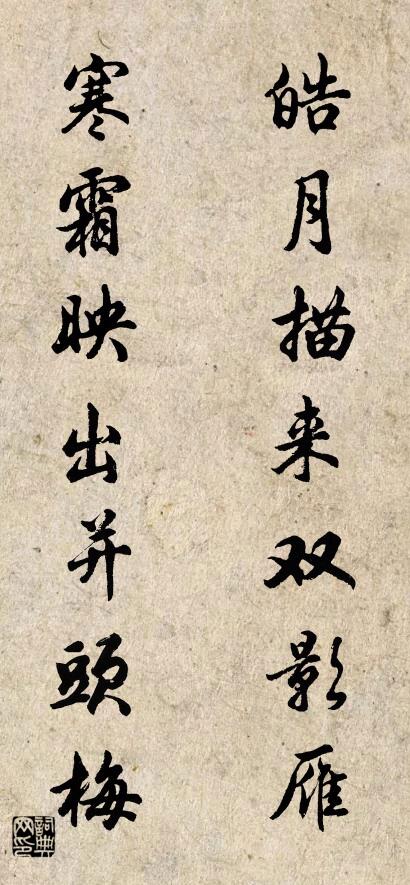 皓月描来双影雁
寒霜映出并頭梅
詞典网印